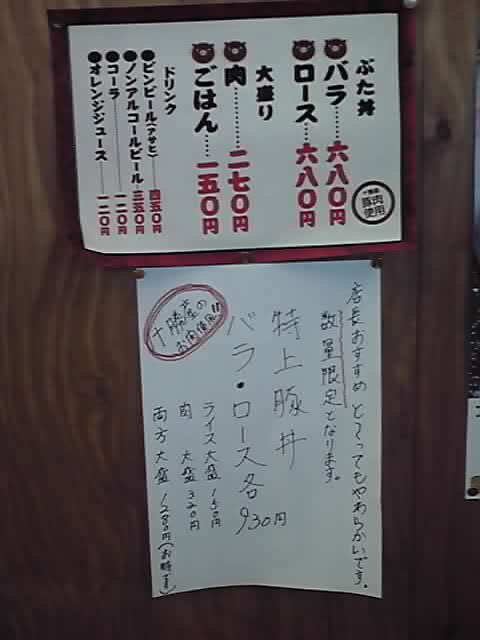 ぶた丼
バラ……六八〇円
ロース…六八〇円
豚肉
使用
大盛り
肉………二七〇円
ごはん…一五〇円
ドリンク
●ビンビール(アサヒ)…四五〇円
●ノンアルコールビール…三五〇円
●コーラ…………一二〇円
●オレンジジュース……一二〇円
店長おすすめ とってもやわらかいです。
数量限定となります。
特上豚丼
バラ・ロース各930円
十勝産の
お肉使用!!
ライス大盛150円
肉 大盛320円
両方大盛1280円(お得です)